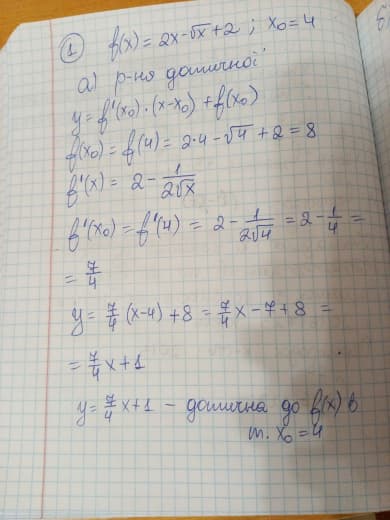 1 f(x) = 2x - √x + 2 ; x₀ = 4
а) р-ня дотичної
y = f'(x₀) · (x - x₀) + f(x₀)
f(x₀) = f(4) = 2·4 - √4 + 2 = 8
f'(x) = 2 - 1/(2√x)
f'(x₀) = f'(4) = 2 - 1/(2√4) = 2 - 1/4 =
= 7/4
y = 7/4 (x-4) + 8 = 7/4 x - 7 + 8 =
= 7/4 x + 1
y = 7/4 x + 1 - дотична до f(x) в
т. x₀ = 4